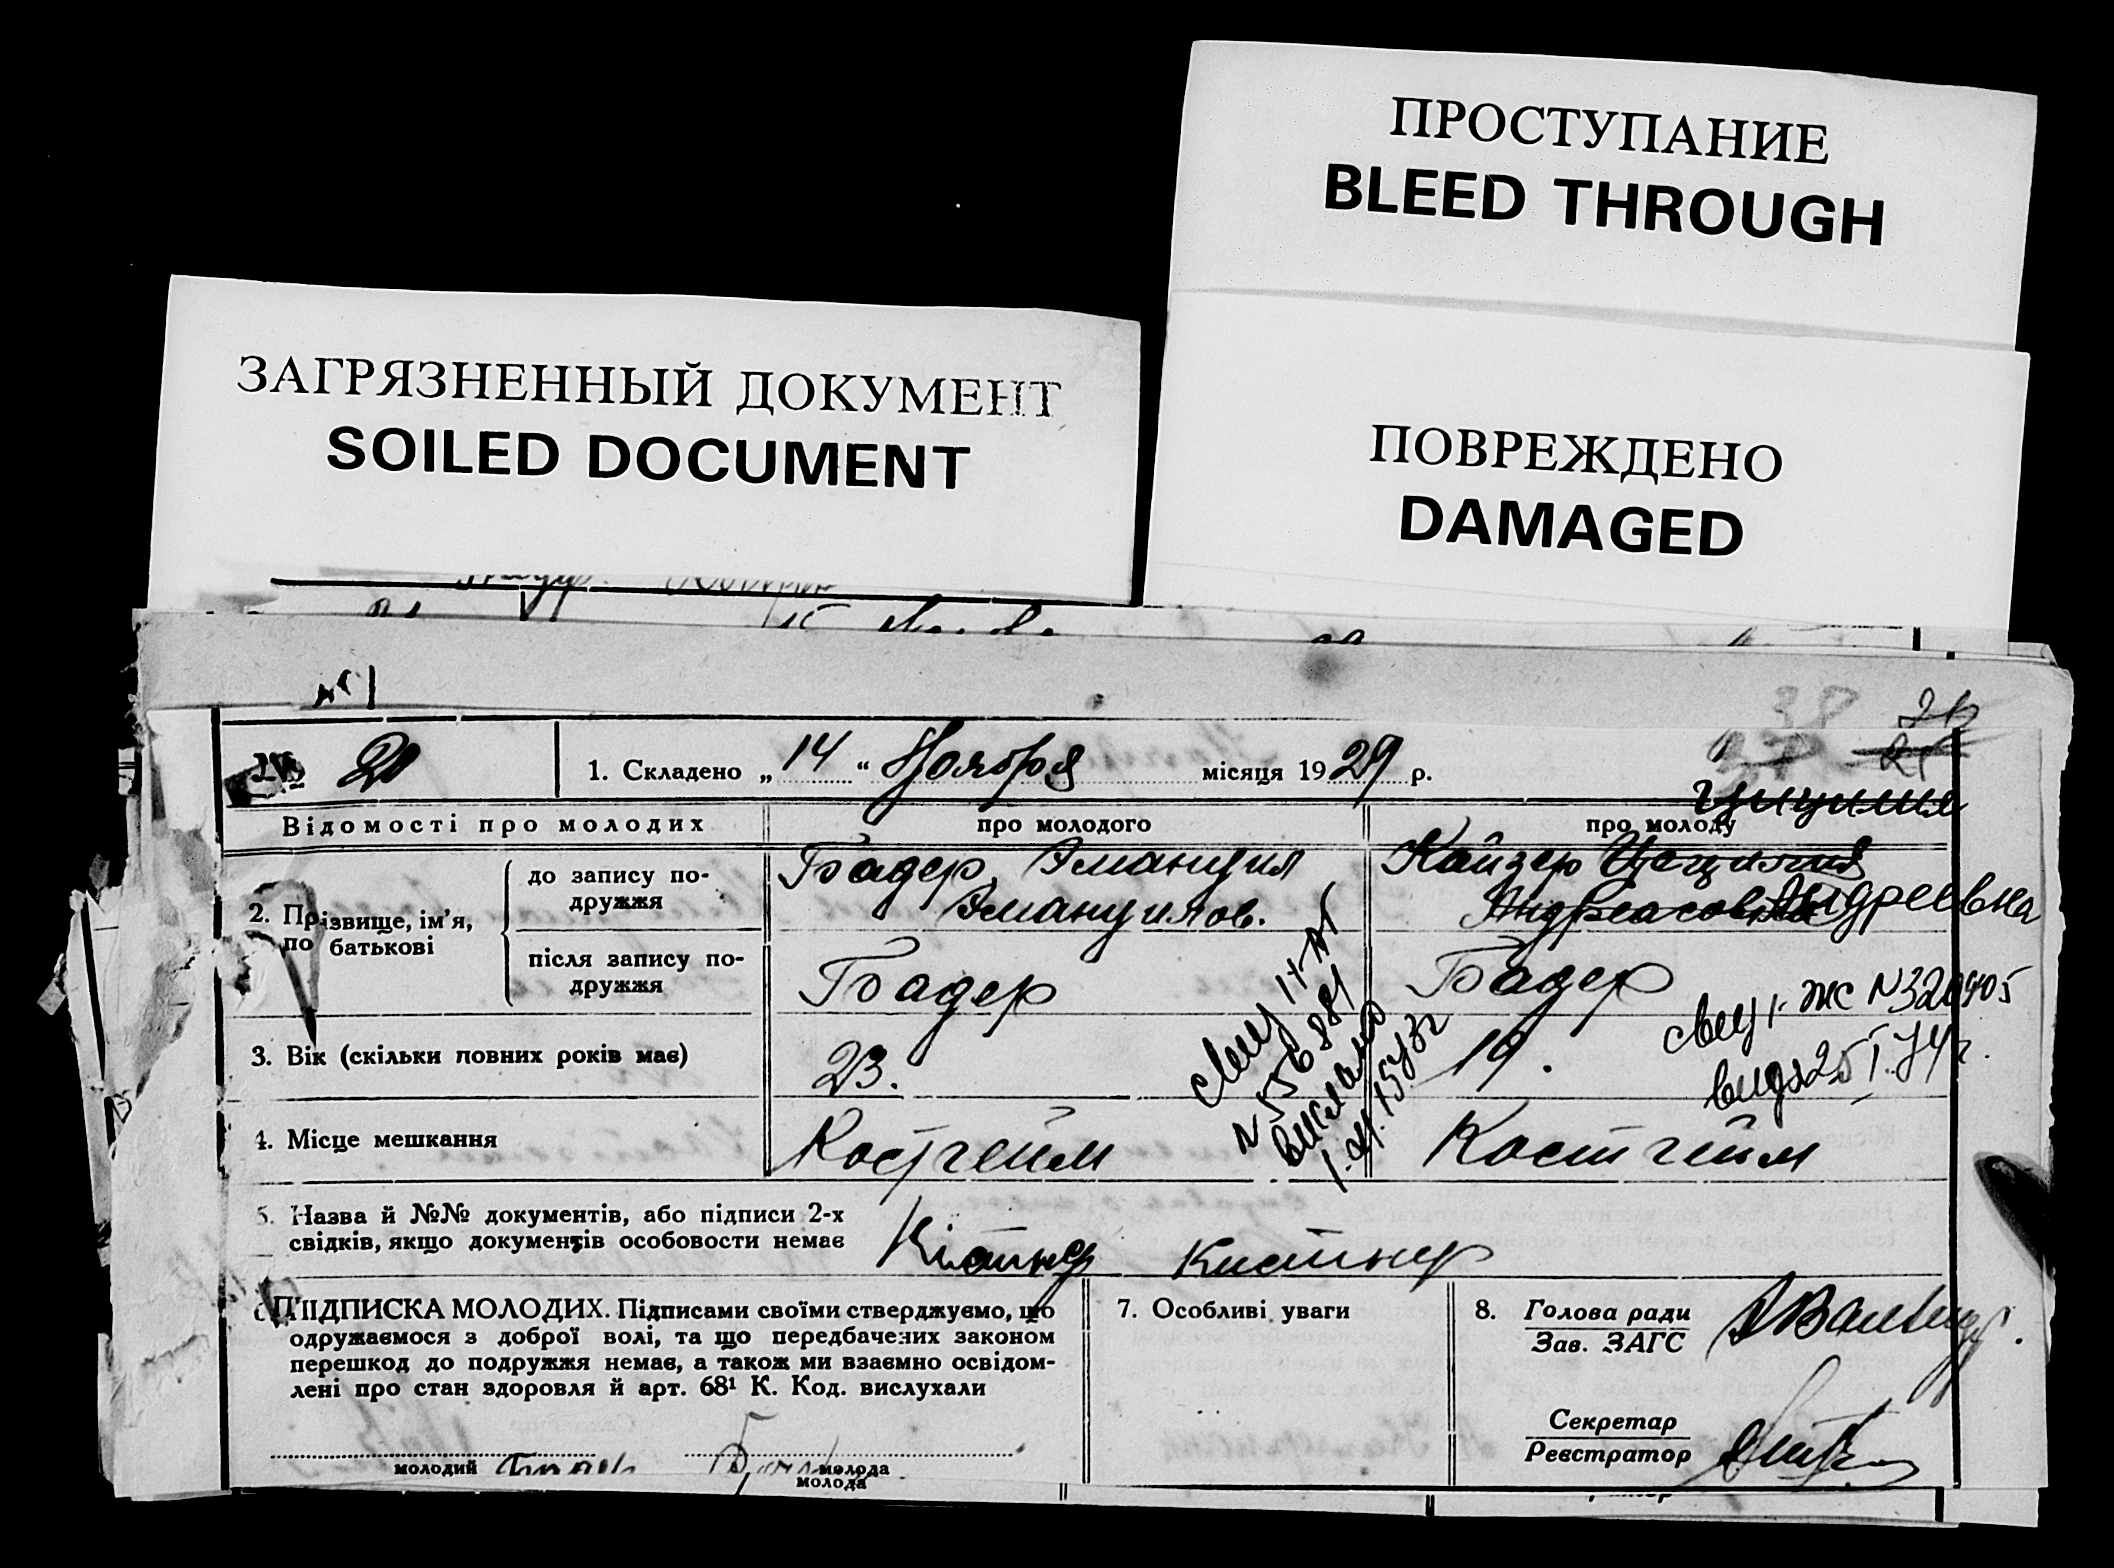 ПРОСТУПАНИЕ
BLEED THROUGH
ЗАГРЯЗНЕННЫЙ ДОКУМЕНТ
SOILED DOCUMENT
ПОВРЕЖДЕНО
DAMAGED
№ 20
1. Складено „ 14 “ Ноября місяця 1929 р.
Відомості про молодих
про молодого
про молоду
2. Прізвище, ім’я,
по батькові
до запису по-
дружжя
Бадер, Эмануил
Эмануилов.
Кайзер
Андреасовна Андреевна
після запису по-
дружжя
Бадер
Бадер
3. Вік (скільки повних років має)
23.
19.
4. Місце мешкання
Костгейм
Костгейм
N 556881
N 320405
5. Назва й №№ документів, або підписи 2-х
свідків, якщо документів особовости немає
Кистнер
6. ПІДПИСКА МОЛОДИХ. Підписами своїми стверджуємо, що
одружаємося з доброї волі, та що передбачених законом
перешкод до подружжя немає, а також ми взаємно освідом-
лені про стан здоровля й арт. 68¹ К. Код. вислухали
молодий
молода
молода
7. Особливі уваги
8. Голова ради
Зав. ЗАГС
Секретар
Реєстратор